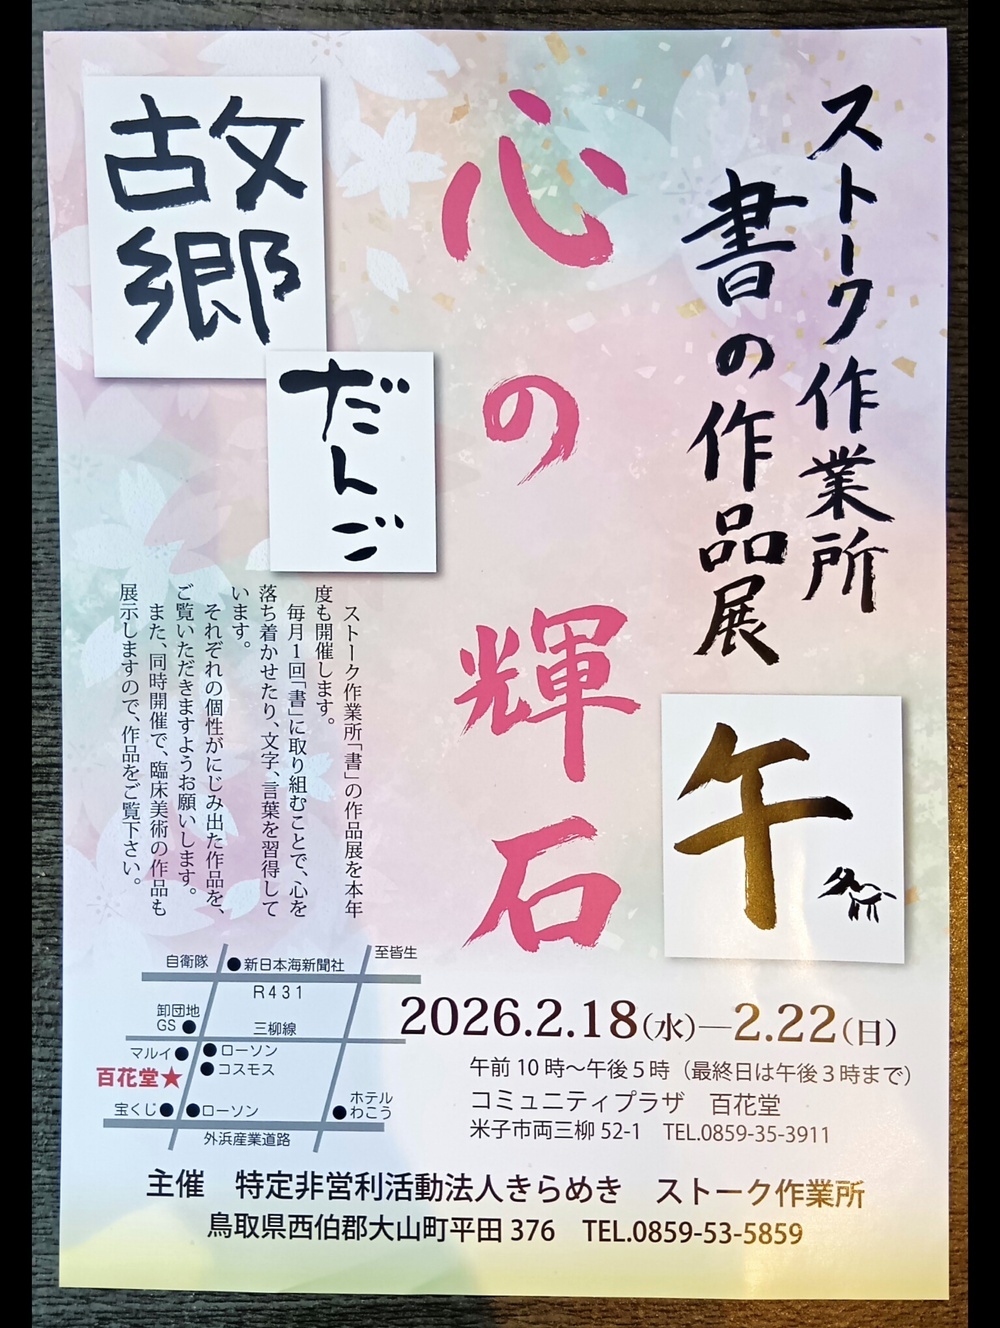 ストーク作業所
書の作品展
心の輝石
故郷
だんご
午
ストーク作業所「書」の作品展を本年
度も開催します。
毎月1回「書」に取り組むことで、心を
落ち着かせたり、文字、言葉を習得して
います。
それぞれの個性がにじみ出た作品を、
ご覧いただきますようお願いします。
また、同時開催で、臨床美術の作品も
展示しますので、作品をご覧下さい。
至皆生
自衛隊
新日本海新聞社
R431
卸団地
GS
三柳線
マルイ
ローソン
コスモス
百花堂★
宝くじ
ローソン
ホテル
わこう
外浜産業道路
2026.2.18(水)―2.22(日)
午前10時〜午後5時(最終日は午後3時まで)
コミュニティプラザ 百花堂
米子市両三柳52-1 TEL.0859-35-3911
主催 特定非営利活動法人きらめき ストーク作業所
鳥取県西伯郡大山町平田376 TEL.0859-53-5859